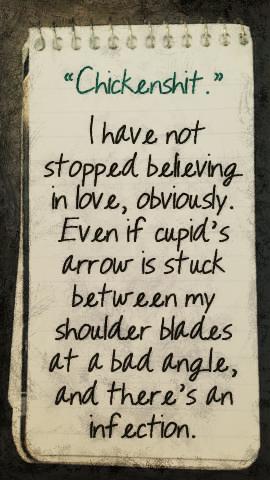 “Chickenshit.”
I have not
stopped believing
in love, obviously.
Even if cupid’s
arrow is stuck
between my
shoulder blades
at a bad angle,
and there’s an
infection.